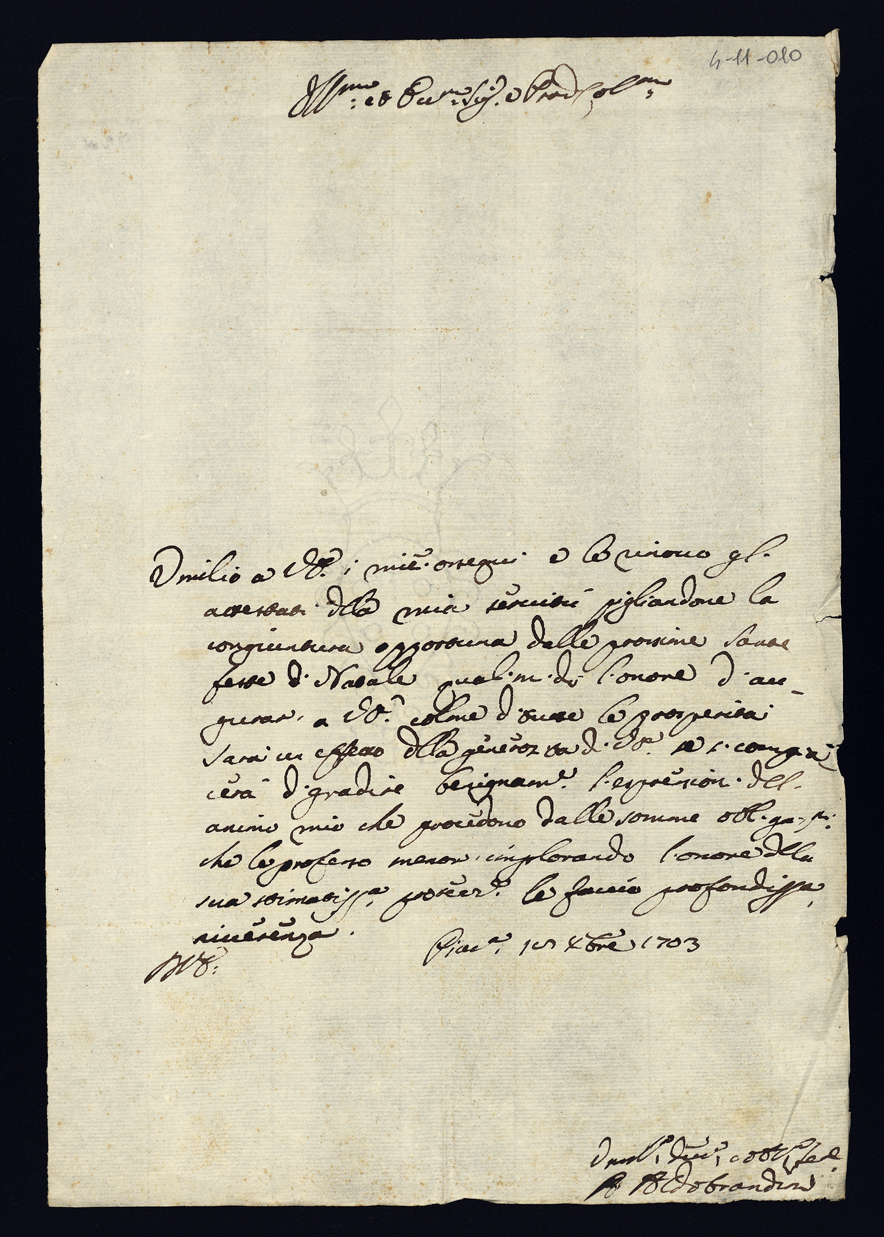 4-11-010
Ill.mo et Ecc.mo Sig.r e Pad.e Col.mo
Umilio a V.E. i miei ossequi e le rinovo gl.
attestati della mia servitù pigliandone la
congiuntura opportuna dalle prossime sante
feste di Natale quali m. di l'onore d'au-
gurar. a V.E. colme d'tutte le prosperità
sarà un effetto della generosità di V.E. se si compia
cerà d'gradire benignam.e l'espressioni dell.
animo mio che procedono dalle somme obligaz.ni
che le professo mentre implorando l'onore della
sua stimatiss.a protez.e le faccio profondiss.a
riverenza.
Piac.a 10 Xbre 1703
D. V.E.
Um.o Dev.o e Obl.o Ser.e
Aldobrandini